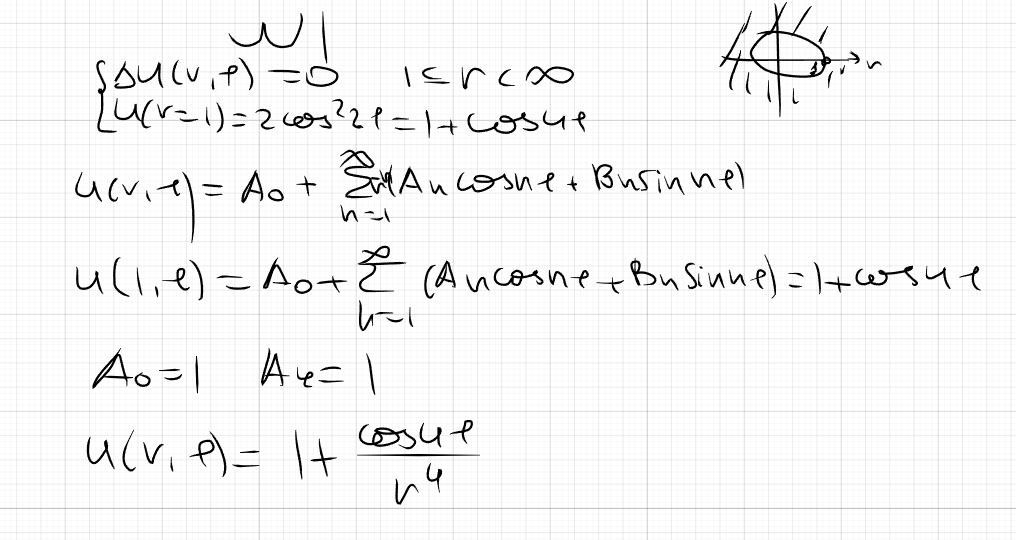 N1
{ Δu(r,φ) = 0   1 ≤ r < ∞
r
u(r=1) = 2cos²2φ = 1 + cos4φ
u(r,φ) = A₀ + ∑_{n=1}^{∞} (Aₙ cosnφ + Bₙ sin nφ)
u(1,φ) = A₀ + ∑_{n=1}^{∞} (Aₙ cosnφ + Bₙ sinnφ) = 1 + cos4φ
A₀ = 1   A₄ = 1
u(r,φ) = 1 + cos4φ / r⁴